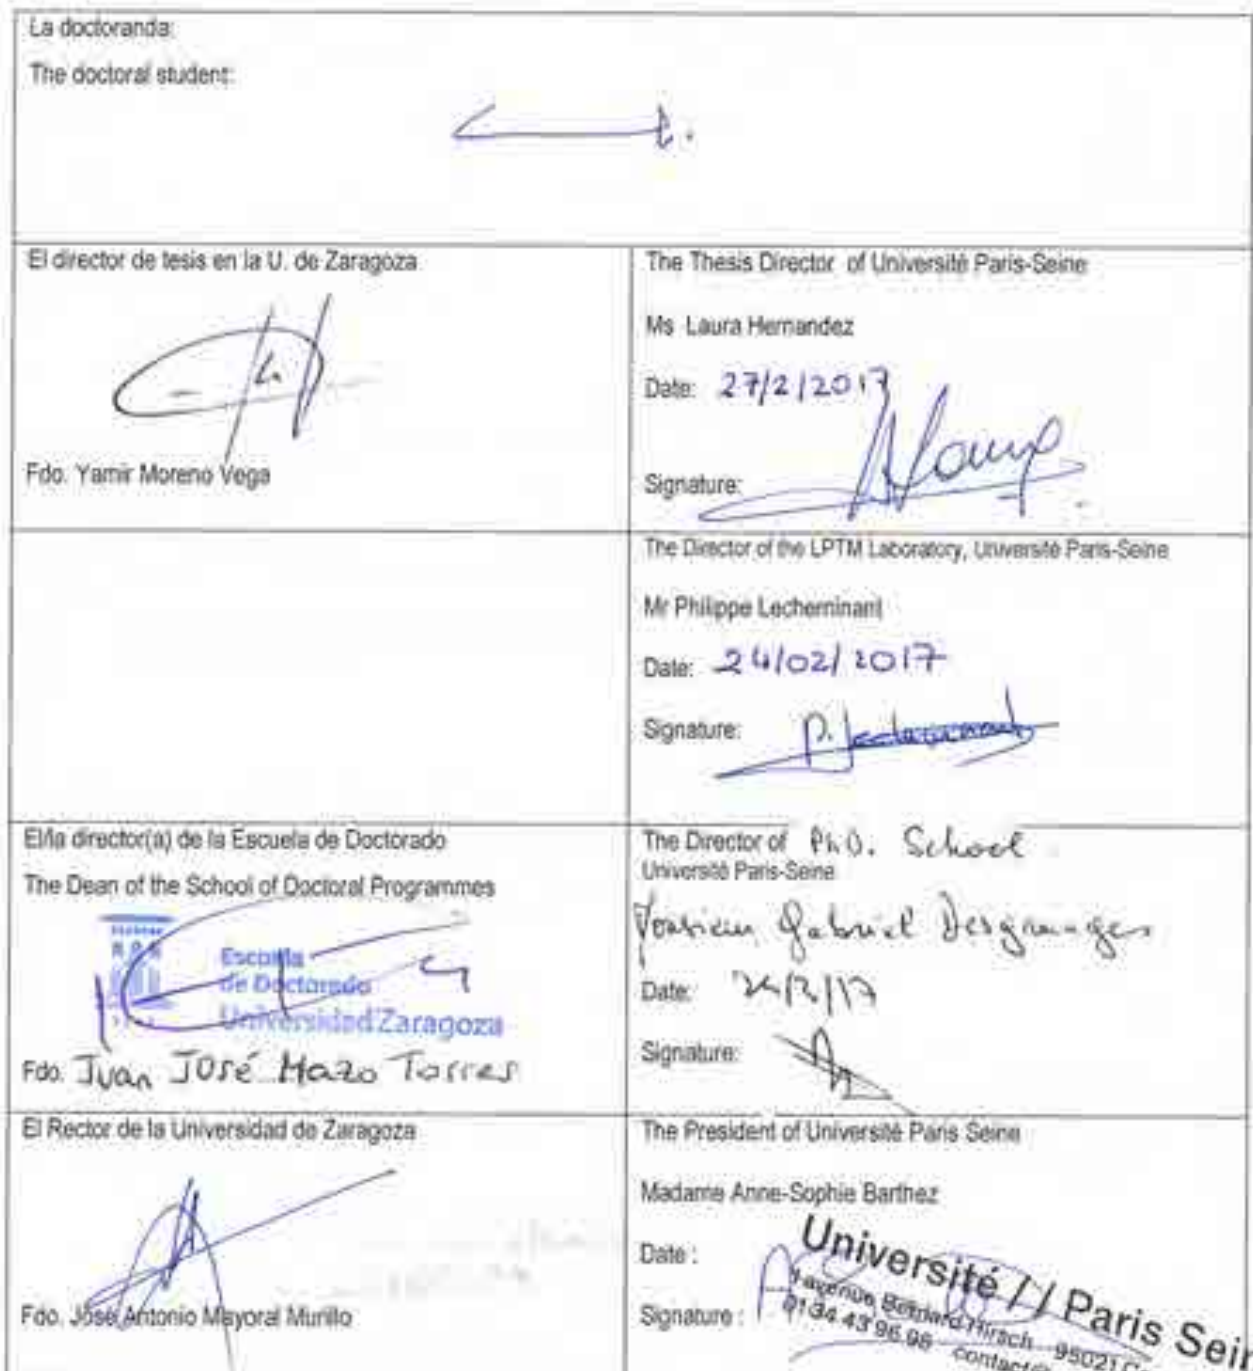 La doctoranda:
The doctoral student:
El director de tesis en la U. de Zaragoza
Fdo. Yamir Moreno Vega
The Thesis Director of Université Paris-Seine
Ms Laura Hernandez
Date: 27/2/2017
Signature:
The Director of the LPTM Laboratory, Université Paris-Seine
Mr Philippe Lecheminant
Date: 24/02/2017
Signature: P. Lecheminant
El/la director(a) de la Escuela de Doctorado
The Dean of the School of Doctoral Programmes
Escuela
de Doctorado
Universidad Zaragoza
Fdo. Juan José Mazo Torres
The Director of Ph.D. School
Université Paris-Seine
Gabriel Desgranges
Date: 24/2/17
Signature:
El Rector de la Universidad de Zaragoza
Fdo. José Antonio Mayoral Murillo
The President of Université Paris Seine
Madame Anne-Sophie Barthez
Date :
Signature :
Université // Paris Sei
avenue Bernard Hirsch 95021
01 34 43 96 98 contact